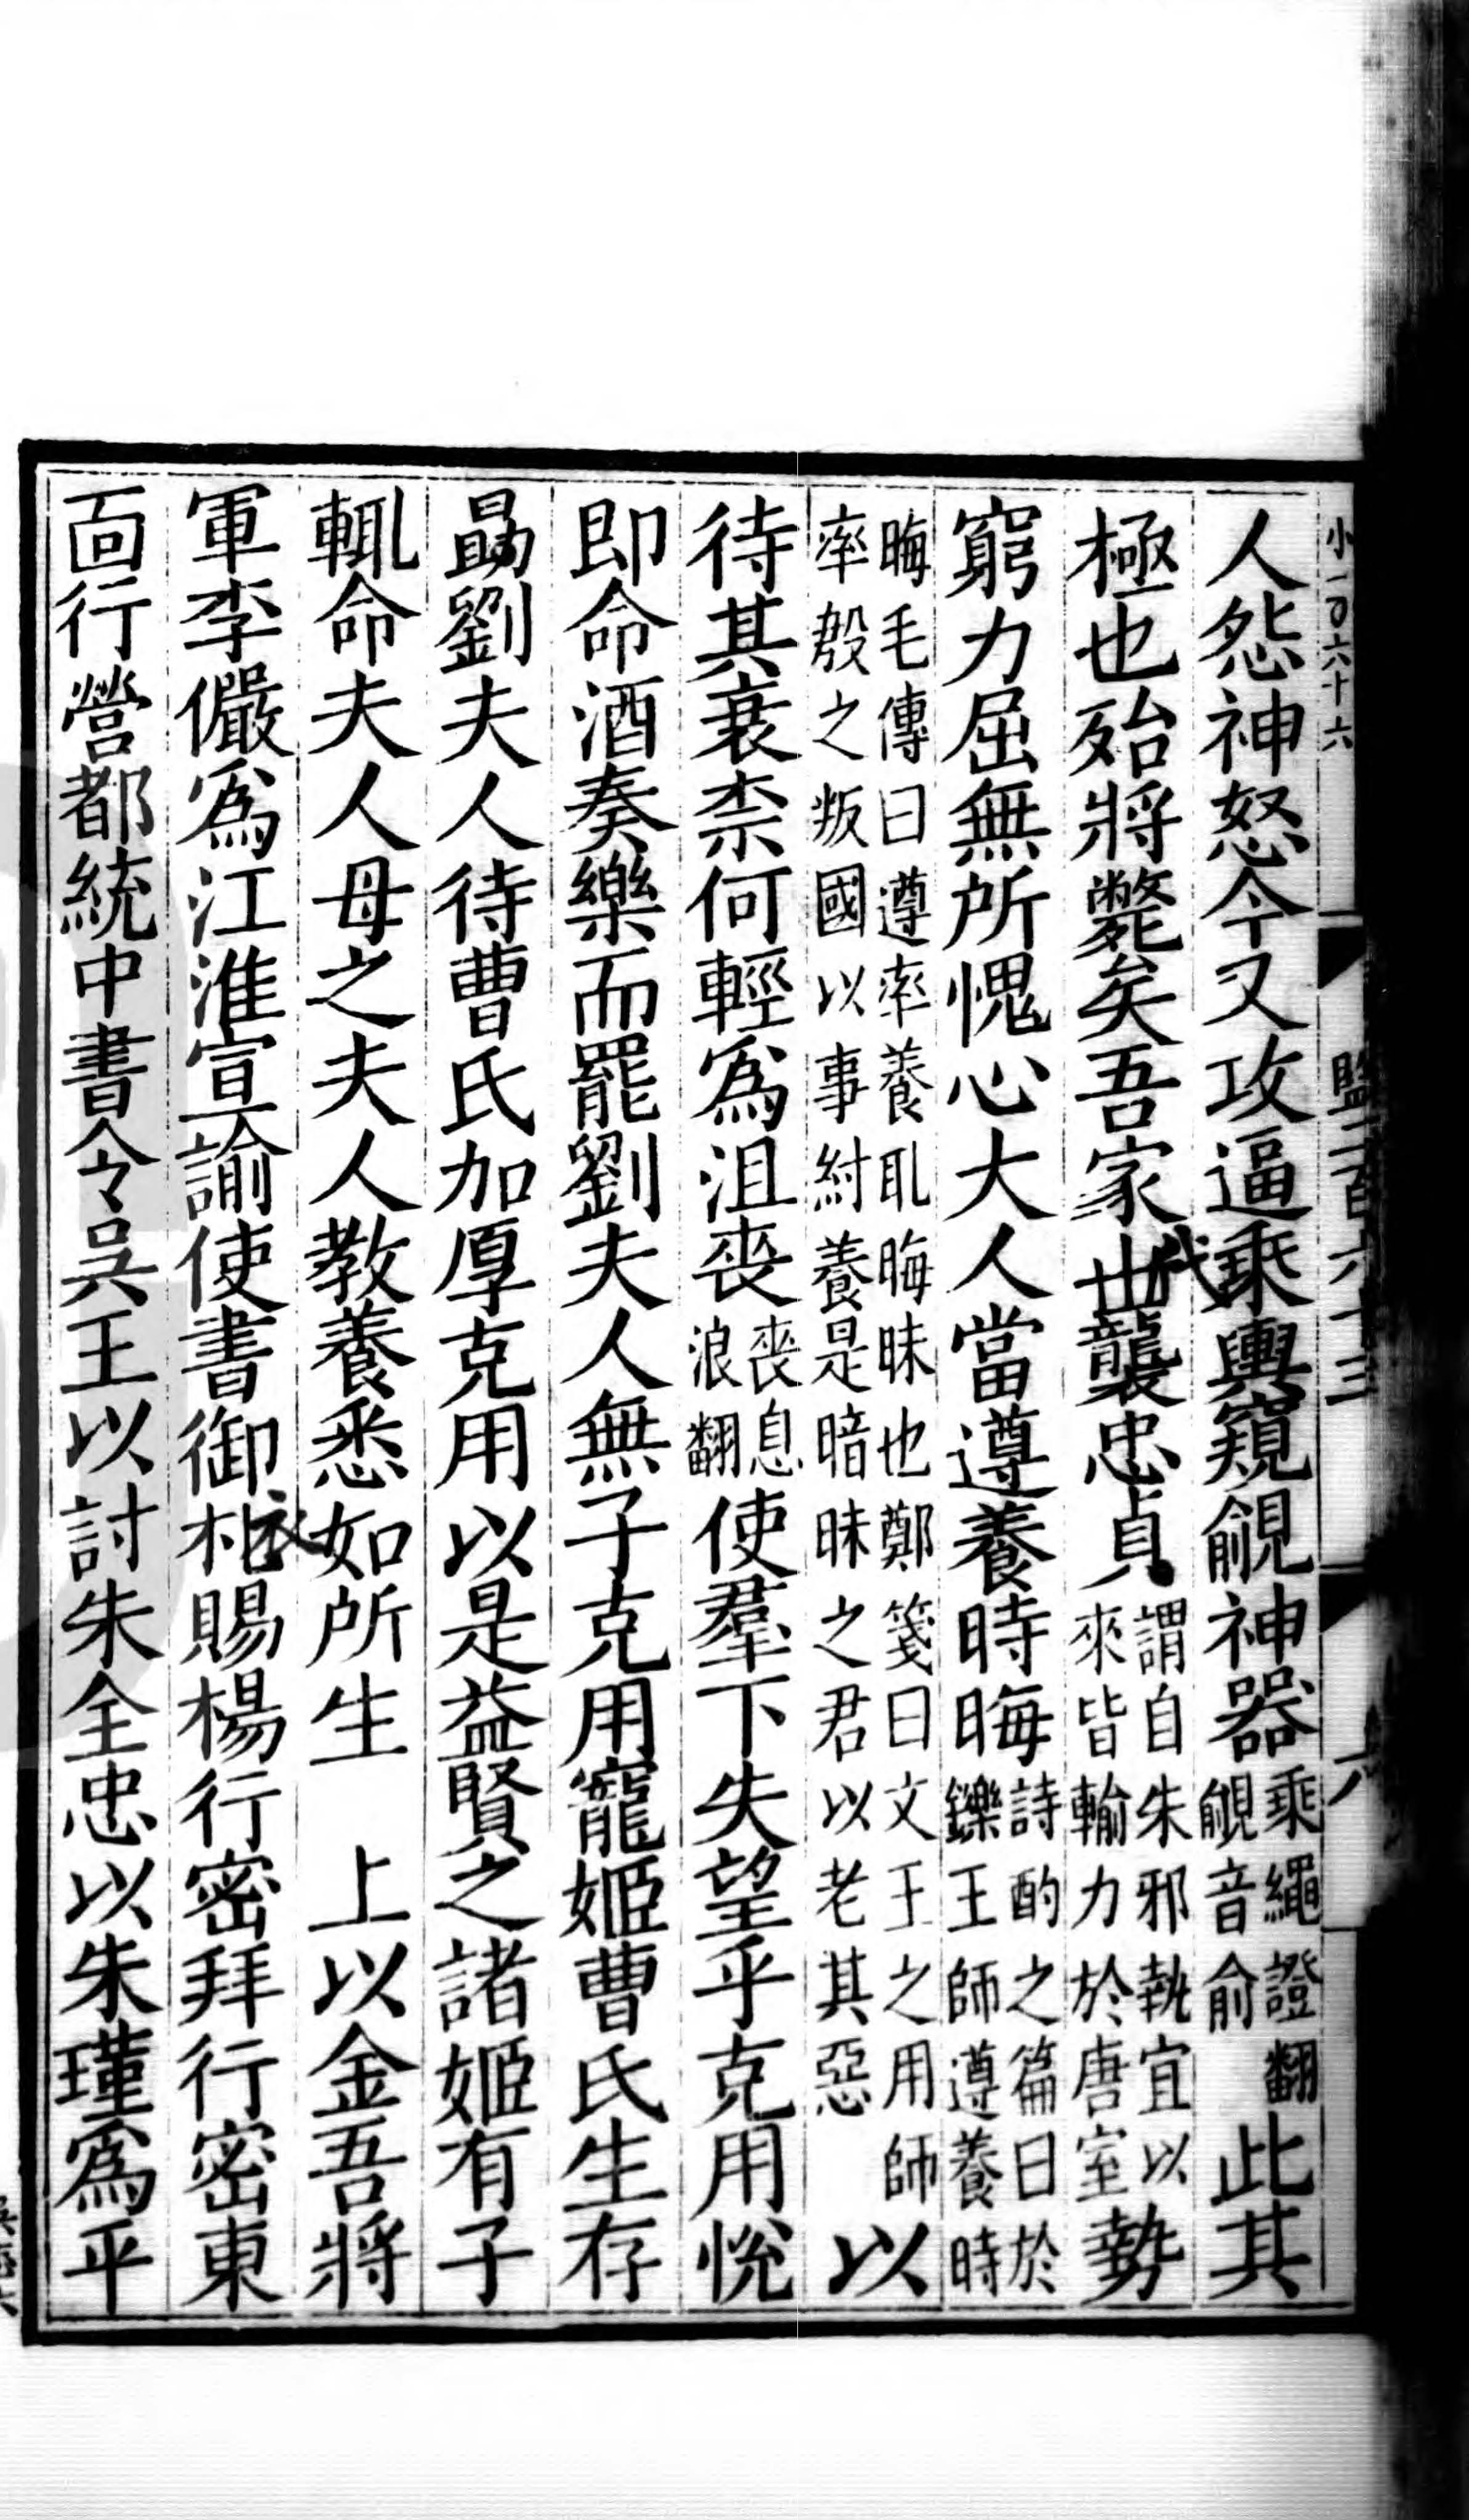 小一百六十六
監二百六十三
六
人怨神怒今又攻逼乘輿窺覦神器乘繩證翻覦音俞此其
極也殆將斃矣吾家世代襲忠貞謂自朱邪執宜以來皆輸力於唐室勢
窮力屈無所愧心大人當遵養時晦詩酌之篇曰於鑠王師遵養時
晦毛傳曰遵率養取晦昧也鄭箋曰文王之用師率殷之叛國以事紂養是暗昧之君以老其惡以
待其衰柰何輕爲沮喪喪息浪翻使羣下失望乎克用悅
即命酒奏樂而罷劉夫人無子克用寵姬曹氏生存
勗劉夫人待曹氏加厚克用以是益賢之諸姬有子
輒命夫人母之夫人教養悉如所生　上以金吾將
軍李儼爲江淮宣諭使書御札衣賜楊行密拜行密東
面行營都統中書令吳王以討朱全忠以朱瑾爲平